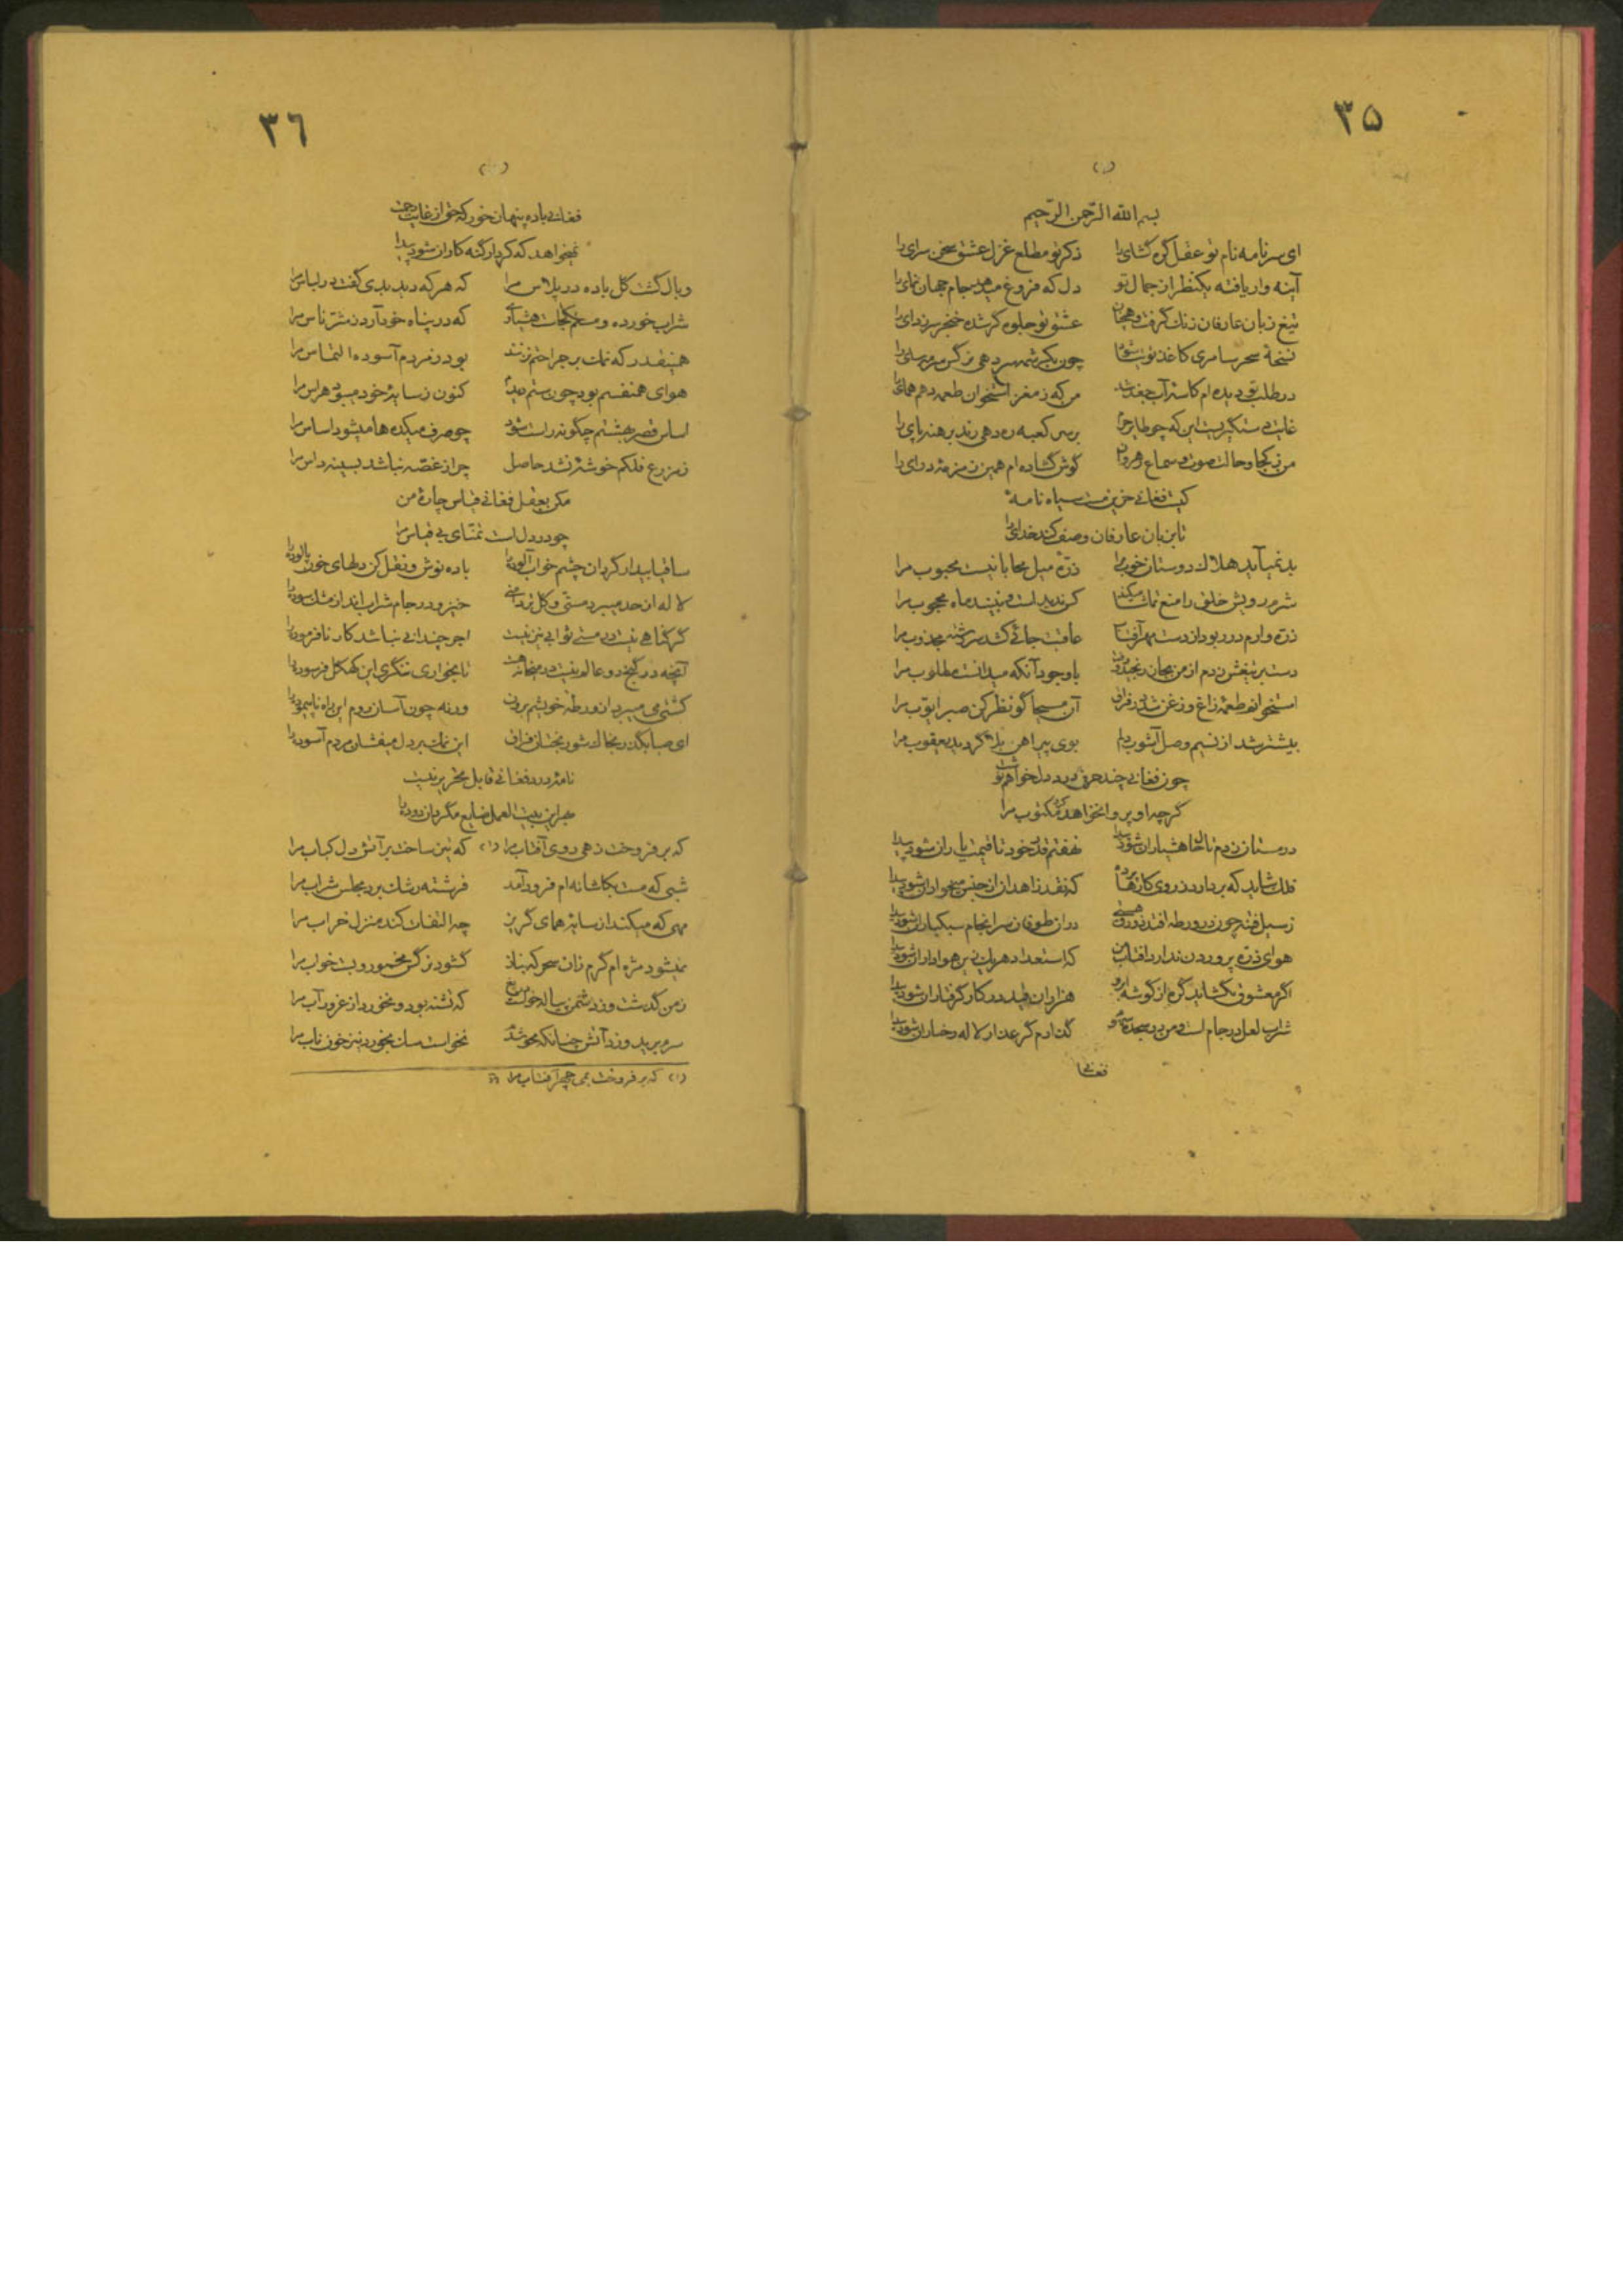 ۳۵
(۱)
بسم الله الرّحمن الرّحیم
ای سر نامه نام تو عقل گره گشای را ذکر تو مطلع غزل عشق سخن سرای را
آینه وار یافته یکنظر از جمال تو دل که فروغ میدهد جام جهان نمای را
تیغ زبان عارفان زنگ گرفت و همچنان عشق تو جلوه گر شده خنجر سرزدای را
نسخهٔ سحر سامری کاغذ توتیا شود چون بکرشمه سر دهی نرگس سرمه سای را
در طلب تو دیده ام کاسهٔ آب جغد شد من که ز مغز استخوان طعمه دهم همای را
غایت دستگیریست این که چو طایر حرم بر سر کعبه ره دهی رند برهنه پای را
من ز کجا و حالت صوت و سماع رهروان گوش گشاده ام همین زمزمهٔ درای را
کیست فغانی حزین مست سیاه نامهٔ
تا بزبان عارفان وصف کند خدای را
بد نمیآید هلاک دوستان خوب مرا ذرهٔ میل محابا نیست محبوب مرا
شرم رویش خلق را منع تماشا میکند کس ندیدست و نبیند ماه محجوب مرا
ذره وارم در ربود از دست مهر آفتاب عاقبت جائی کشد سررشته مجذوب مرا
دست بر تیغش زدم از من بجان رنجید و رفت با وجود آنکه میدانست مطلوب مرا
استخوانم طعمهٔ زاغ و زغن شد در فراق آن مسیحا گو نظر کن صبر ایوب مرا
بیشتر شد از نسیم وصل آشوب دلم بوی پیراهن بلا گردید یعقوب مرا
چون فغانی چند حرف درد دل خواهم نوشت
گرچه او پروا نخواهد کرد مکتوب مرا
در مستان زدم تا حال هشیاران شود پیدا نهفتم قدر خود تا قیمت یاران شود پیدا
فلک شاید که بردارد ز روی کارها پرده که نقد زاهدان از جنس میخواران شود پیدا
ز سیل فتنه چون در ورطه افتد زورق هستی در ان طوفان سرانجام سبکباران شود پیدا
هوای ذره پروردن ندارد آفتاب من که استعداد هر یک زین هواداران شود پیدا
اگر معشوق نگشاید گره از گوشهٔ ابرو هزاران عقده در کار گرفتاران شود پیدا
شراب لعل در جام است و من در سجدهٔ گذارم گر عذار لاله رخساران شود پیدا
فغانی
۳٦
(۲)
فغانی باده پنهان خور که حق از غایت رحمت
نمیخواهد که کردار گنه کاران شود پیدا
وبال گشت گل باده در پلاس مرا که هر که دید بدی گفت در لباس مرا
شراب خورده و مستم کجاست هشیاری که در پناه خود آرد ز شرّ ناس مرا
همینقدر که نمک بر جراحتم نزنند بود ز مردم آسوده التماس مرا
هوای همنفسم بود چون ستم دیدم کنون ز سایهٔ خود میبود هراس مرا
اساس قصر بهشتم چگونه راست شود چو صرف میکده ها میشود اساس مرا
ز مزرع فلکم خوشهٔ نشد حاصل چرا ز غصّه نباشد بسینه داس مرا
مکن بعقل فغانی قیاس چارهٔ من
چو در دل است تمنّای بی قیاس مرا
ساقیا بیدار گردان چشم خواب آلوده را باده نوش و نقل کن دلهای خون پالوده را
لاله از حد میبرد مستی و گل تردامنی خیز و در جام شراب انداز مشک سوده را
گر گناهی نیست در مستی ثوابی نیز نیست اجر چندانی نباشد کار نافرموده را
آنچه در گنج دو عالم نیست در میخانه هست تا بخواری ننگری این کهنه گل فرسوده را
کشتی می میبرد از ورطهٔ خویشم برون ورنه چون آسان روم این راه ناپیموده را
ای صبا بگذر بخاک شوربختان فراق این نمک بر دل میفشان مردم آسوده را
نامهٔ درد فغانی قابل تحریر نیست
بهر این بیت العمل ضایع مگردان دوده را
که برفروخت ز می روی آفتاب مرا (۱) که تیز ساخت بر آتش دل کباب مرا
شبی که مست بکاشانه ام فرود آمد فرشته رشک برد مجلس شراب مرا
مهی که میکند از سایهٔ همای گریز چه التفات کند منزل خراب مرا
نمیشود مژه ام گرم زان سحر که بناز گشود نرگس مخمور و بست خواب مرا
ز من گذشت و ز دشمن پیاله خواست که تشنه بود و نخورد از غرور آب مرا
سرم برید و ز آتش چنانکه محو شدم نخواست سان بخورد نیز خون ناب مرا
(۱) که برفروخت بمی چهر آفتاب مرا